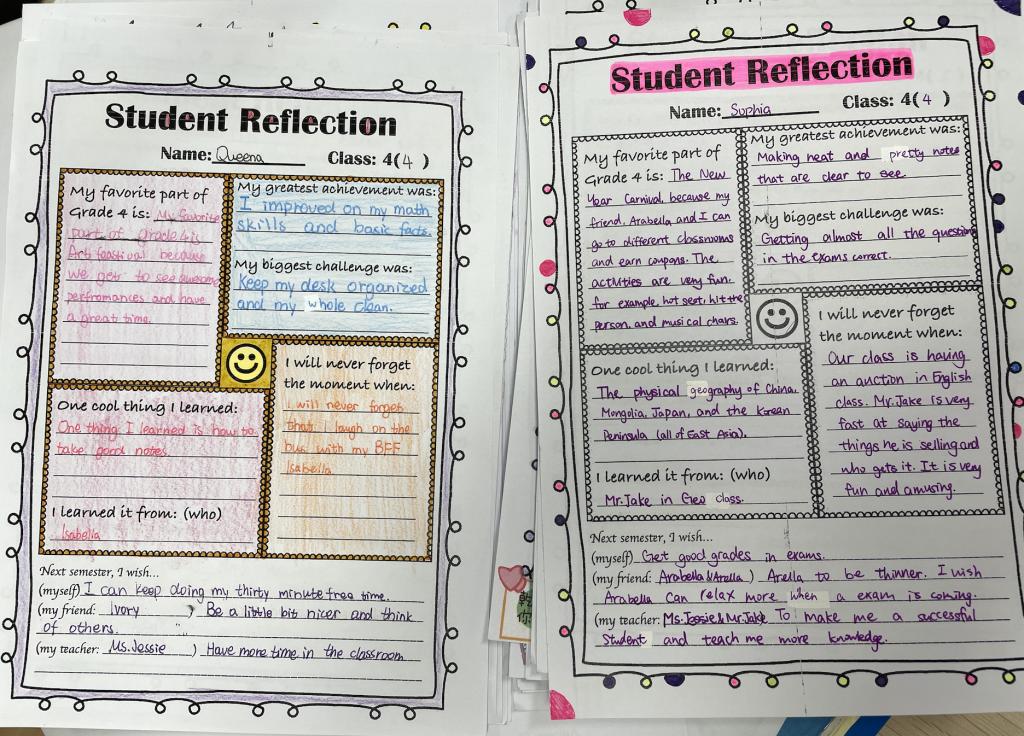 Student Reflection
Name: Queena Class: 4(4)
My favorite part of
Grade 4 is: My favorite
part of grade 4 is
Art feastival because
we get to see awesome
perfromances and have
a great time.
My greatest achievement was:
I improved on my math
skills and basic facts.
My biggest challenge was:
Keep my desk organized
and my whole clean.
One cool thing I learned:
One thing I learned is how to
take good notes.
I learned it from: (who)
Isabella
I will never forget
the moment when:
I will never forget
that I laugh on the
bus with my BFF
Isabella
Next semester, I wish...
(myself) I can keep doing my thirty minute free time.
(my friend: Ivory ) Be a little bit nicer and think
of others.
(my teacher: Ms.Jessie ) Have more time in the classroom
Student Reflection
Name: Sophia Class: 4(4)
My favorite part of
Grade 4 is: The New
Year Carnival, because my
friend, Arabella and I can
go to different classrooms
and earn coupons. The
activities are very fun.
for example, hot seat, hit the
person, and musical chairs.
My greatest achievement was:
Making neat and pretty notes
that are clear to see.
My biggest challenge was:
Getting almost all the questions
in the exams correct.
One cool thing I learned:
The physical geography of China.
Mongolia, Japan, and the Korean
Peninsula (all of East Asia).
I learned it from: (who)
Mr.Jake in Geo class.
I will never forget
the moment when:
Our class is having
an auction in English
class. Mr.Jake is very
fast at saying the
things he is selling and
who gets it. It is very
fun and amusing.
Next semester, I wish...
(myself) Get good grades in exams.
(my friend: Arabella & Arella ) Arella to be thinner. I wish
Arabella can relax more when a exam is coming.
(my teacher: Ms.Jessie & Mr.Jake To make me a successful
student and teach me more knowledge.